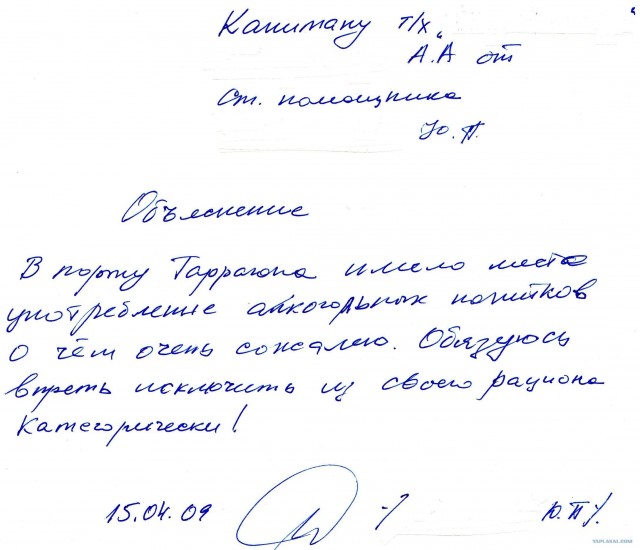 Капитану т/х „
А.А от
Ст. помощника
Ю.П.
Объяснение
В порту Таррагона имело место
употребление алкогольных напитков
о чём очень сожалею. Обязуюсь
впредь исключить из своего рациона
Категорически!
15.04.09
Ю.П
YAPLAKAL.COM